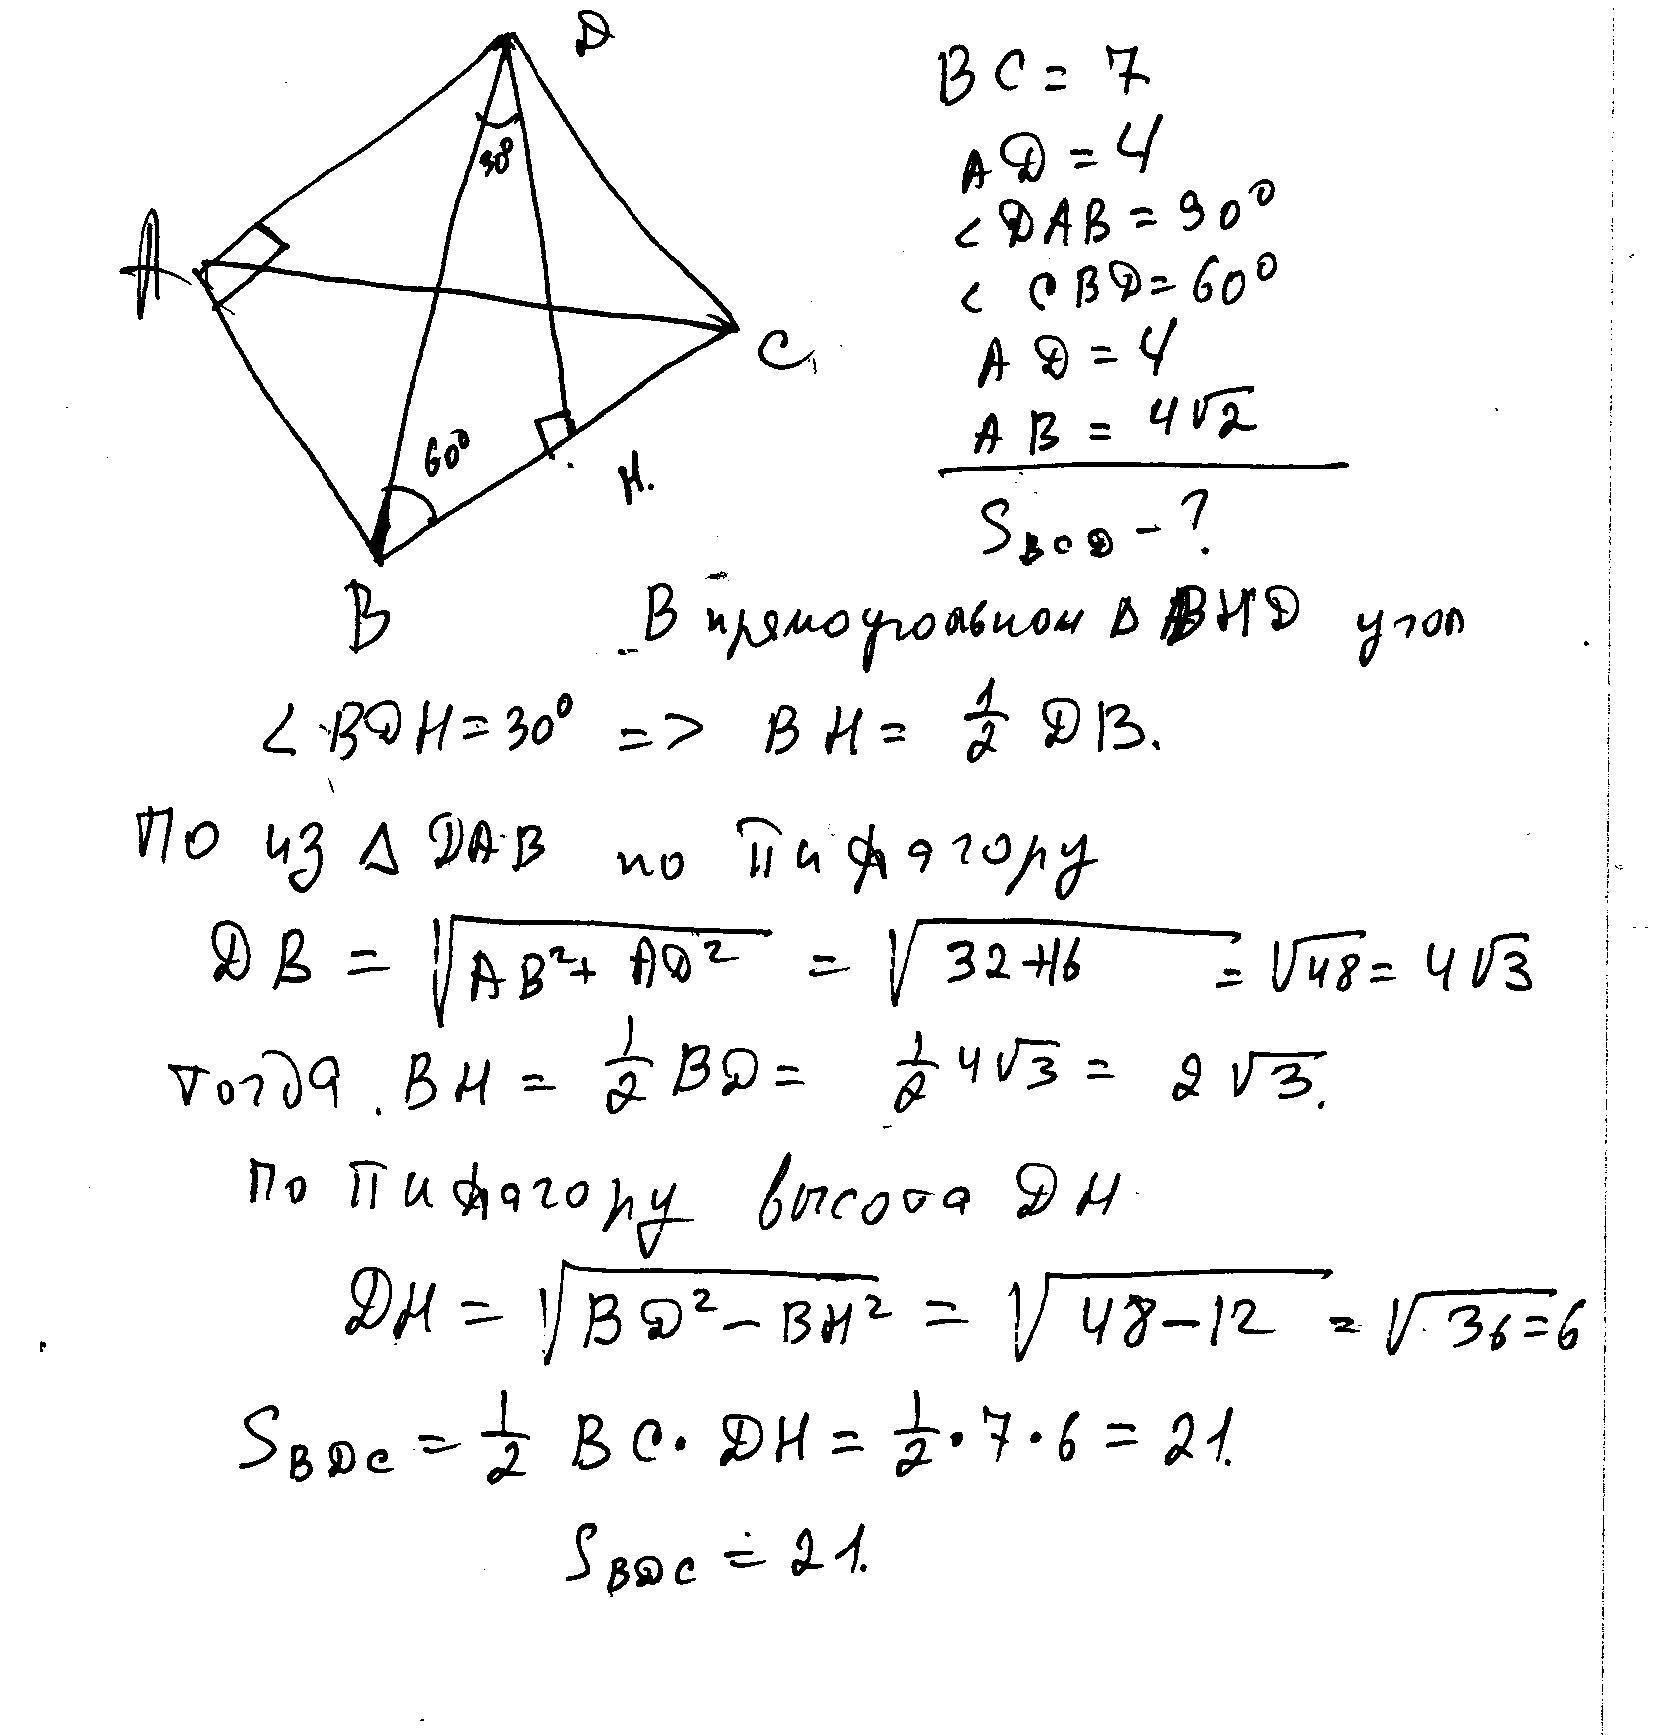 D
30°
A
C
60°
H.
B
BC = 7
AD = 4
< DAB = 90°
< CBD = 60°
AD = 4
AB = 4√2
S BCD - ?
В прямоугольном Δ BHD угол
< BDH = 30° => BH = 1/2 DB.
По из Δ DAB по Пифагору
DB = √AB²+AD² = √32+16 = √48 = 4√3
тогда BH = 1/2 BD = 1/2 4√3 = 2√3.
По Пифагору высота DH
DH = √BD²-BH² = √48-12 = √36 = 6
S BDC = 1/2 BC · DH = 1/2 · 7 · 6 = 21.
S BDC = 21.